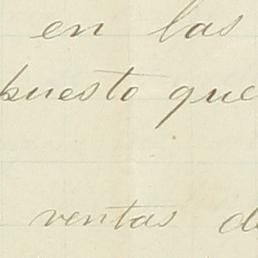 en las
puesto que
ventas de